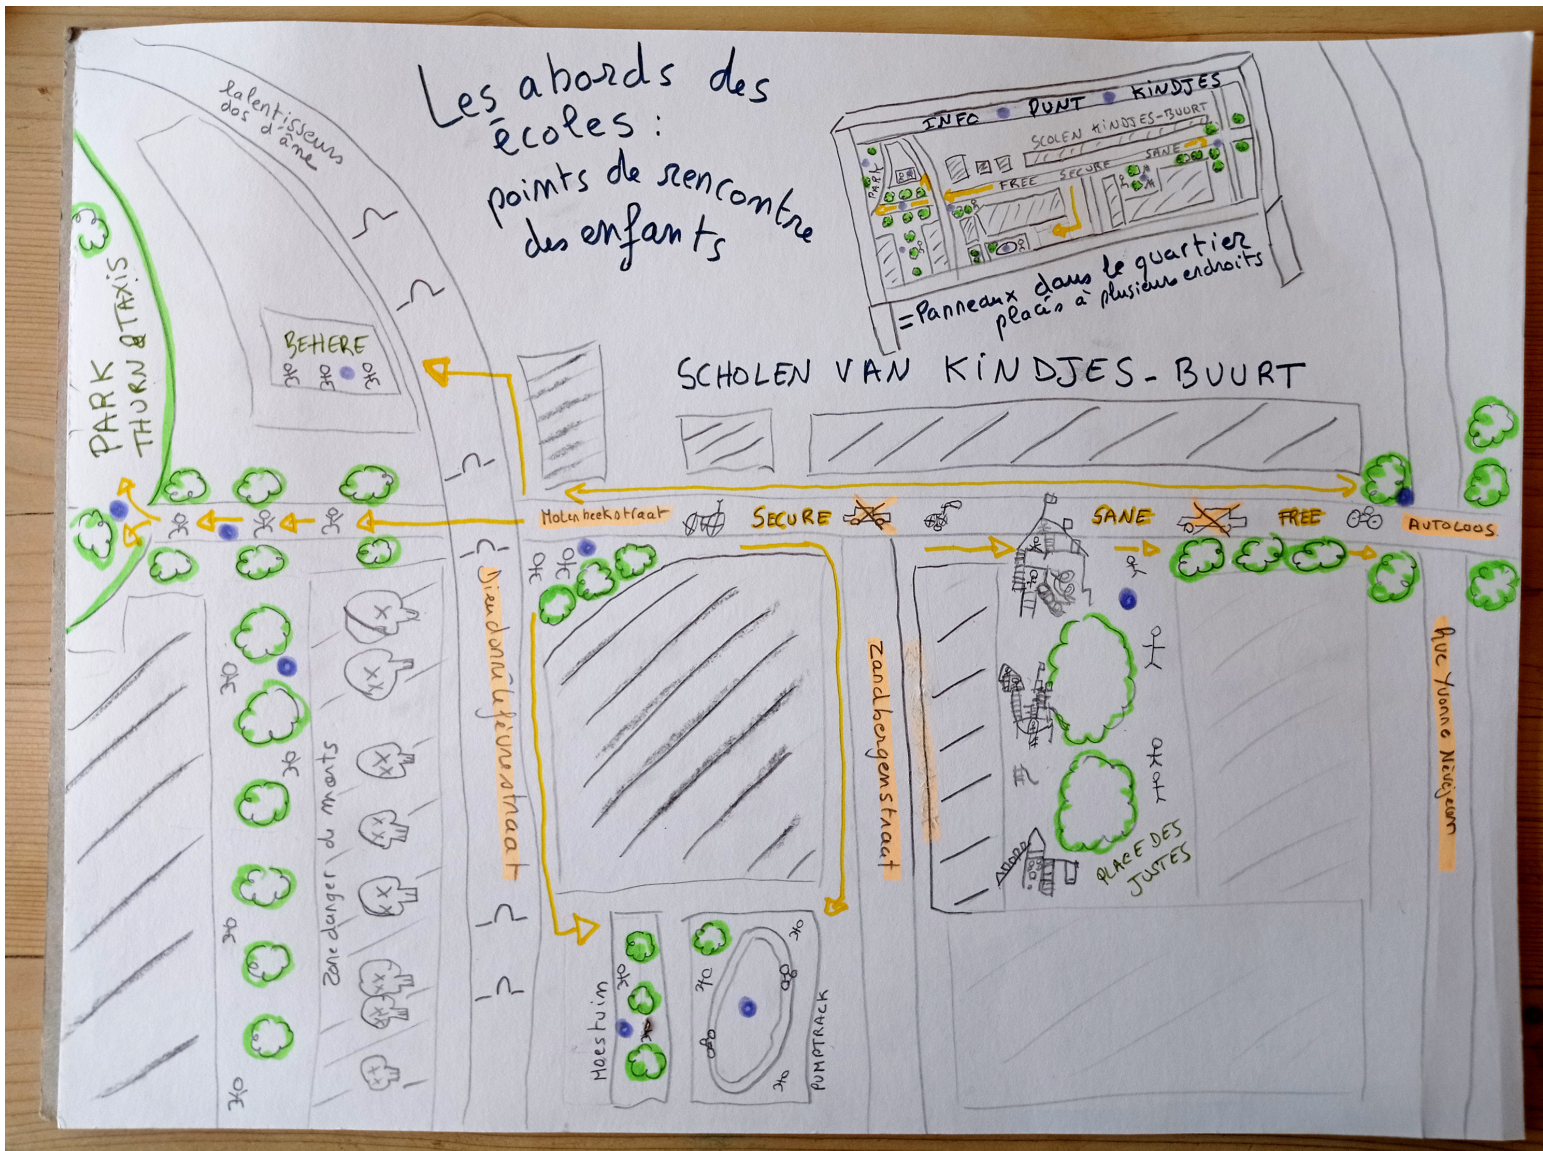 Les abords des
écoles :
points de rencontre
des enfants
ralentisseurs
dos d'âne
INFO PUNT KINDJES
SCOLEN KINDJES-BUURT
PARK
FREE SECURE SANE
= Panneaux dans le quartier
placés à plusieurs endroits
PARK
THURN & TAXIS
BEHERE
SCHOLEN VAN KINDJES-BUURT
Molenbeekstraat
SECURE
SANE
FREE
AUTOLOOS
Dieudonné Lefèvrestraat
Zandbergenstraat
Rue Yvonne Nèvejean
zone danger de morts
PLACE DES
JUSTES
Moestuin
PUMPTRACK